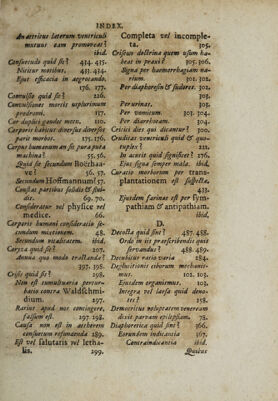 INDEX.
An acetrius laterum ventriculi
mutuus eam promoveat?
ibid.
Consuetudo quid sit? 434. 435.
Nititur motibus. 433. 434.
Ejus efficacia in aegrotando.
176. 177.
Convulsio quid sit? 226.
Convulsiones mortis neplurimum
prodromi. 117.
Cor duplici gaudet motu. 110.
Corporis habitus diversus diversos
parit morbos. 175. 176.
Corpus humanum an sit pura puta
machina? 55. 56.
Quid sit secundum Boërhaave?
56. 57.
Secundum Hoffmannum? 57.
Constat partibus solidis & fluidis.
69. 70.
Consideratur vel physice vel
medice. 66.
Corporis humani consideratio secundum
mixtionem. 48.
Secundum vitalitatem. ibid.
Coryza quid sit? 207.
Annua quo modo tractanda?
197. 198.
Crisis quid sit? 298.
Non est tumultuaria perturbatio
contra Waldschmidium.
297.
Rarius apud nos contingere,
falsum est. 297. 298.
Causa non est in aetherem
conjuetum refundenda 289.
Est vel salutaris vel lethalis.
299.
Completa vel incompleta.
305.
Criseos doctrina quem usum habeat
in praxi? 305. 306.
Signa per haemorrhagiam narium.
301. 302.
Per diaphoresin & sudores. 302.
303.
Per urinas. 303.
Per vomicum. 303. 304.
Per diarrhoeam. 304.
Critici dies qui dicantur? 300.
Cruditas ventriculi quid & quotuplex?
212.
In acutis quid significet? 276.
Ejus signa semper mala. ibid.
Curatio morborum per transplantationem
est suspecta,
413.
Ejusdem farinae est per sympathiam
& antipathiam.
ibid.
D.
Decocta quid sint? 487. 488.
Ordo in iis praescribendis quid
servandus? 488. 489.
Decubitus ratio varia 284.
Deglutitionis ciborum mechanismus.
102. 103.
Ejusdem organismus. 103.
Integra vel laesa quid denotet?
158.
Democritus voluptatem veneream
dixit parvam epilepsiam. 78.
Diaphoretica quid sint? 366.
Eorundem indicantia 367.
Contraindicantia ibid.
Quibus